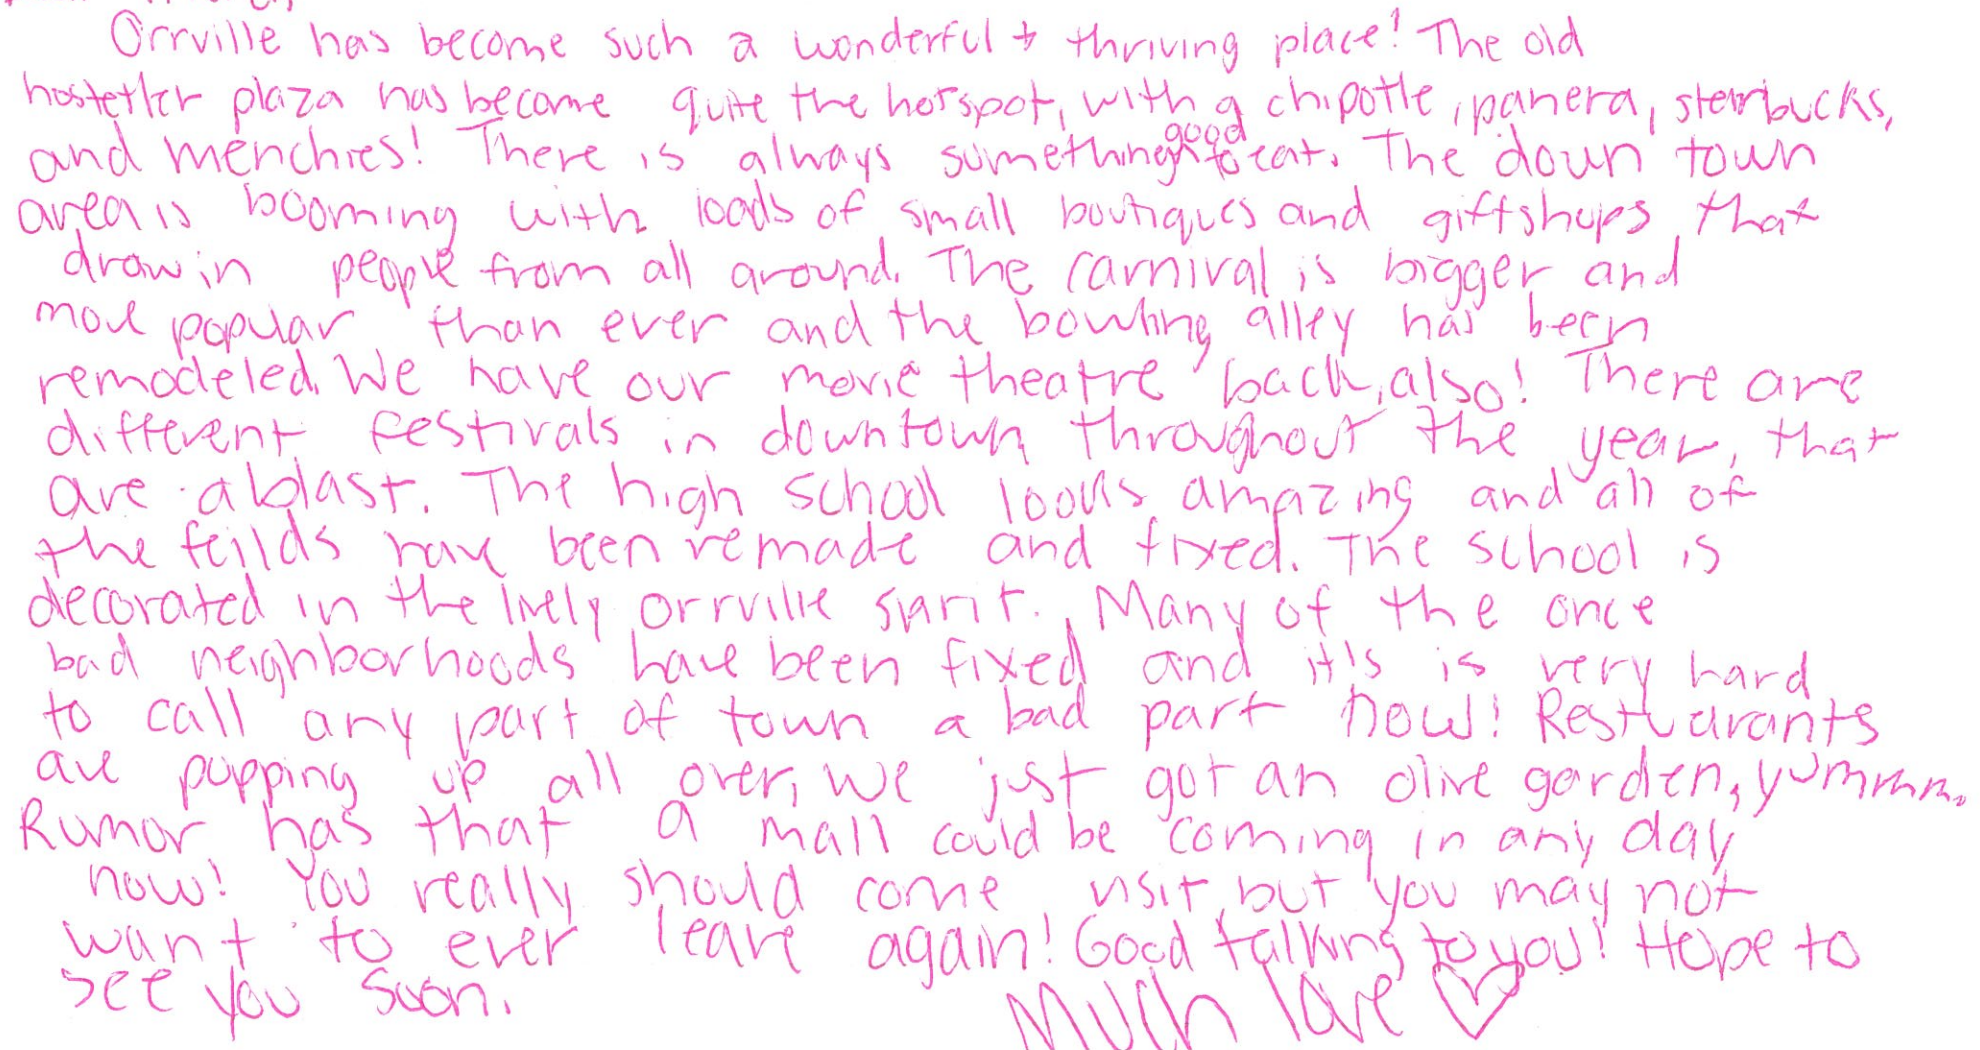 Orrville has become such a wonderful + thriving place! The old
hostetler plaza has become quite the hotspot, with a chipotle, panera, starbucks,
and menchies! There is always something good to eat. The down town
area is booming with loads of small boutiques and giftshops that
draw in people from all around. The carnival is bigger and
more popular than ever and the bowling alley has been
remodeled. We have our movie theatre back, also! There are
different festivals in downtown throughout the year, that
are a blast. The high school looks amazing and all of
the feilds have been remade and fixed. The school is
decorated in the lively orrville spirit. Many of the once
bad neighborhoods have been fixed and it's is very hard
to call any part of town a bad part now! Restuarants
are popping up all over, we just got an olive garden, yummm.
Rumor has that a mall could be coming in any day
now! You really should come visit, but you may not
want to ever leave again! Good talking to you! Hope to
see you soon.
Much love ♡